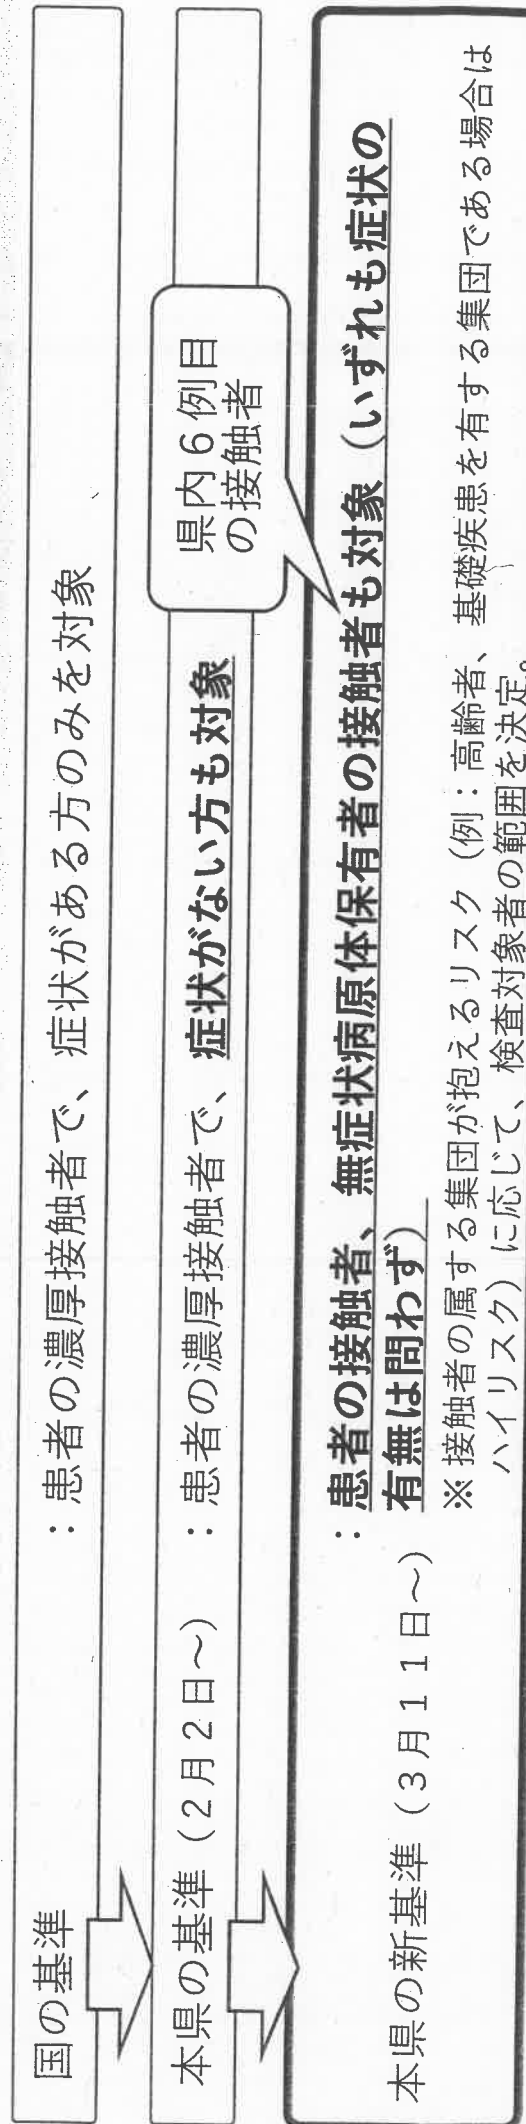 国の基準　：患者の濃厚接触者で、症状がある方のみを対象
本県の基準（２月２日～）　：患者の濃厚接触者で、症状がない方も対象
県内６例目
の接触者
本県の新基準（３月１１日～）　：患者の接触者、無症状病原体保有者の接触者も対象（いずれも症状の
有無は問わず）
※接触者の属する集団が抱えるリスク（例：高齢者、基礎疾患を有する集団である場合は
ハイリスク）に応じて、検査対象者の範囲を決定。